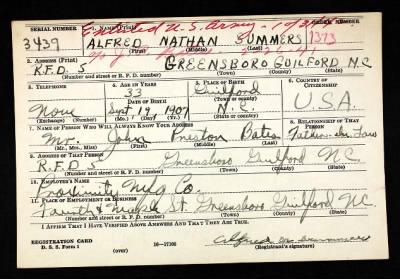 SERIAL NUMBER 1. NAME (Print) ORDER NUMBER
Enlisted U.S. Army -
3439 ALFRED NATHAN SUMMERS 1373
(First) (Middle) (Last)
2. ADDRESS (Print)
R.F.D. 5 GREENSBORO GUILFORD N.C.
(Number and street or R.F.D. number) (Town) (County) (State)
3. TELEPHONE 4. AGE IN YEARS 5. PLACE OF BIRTH 6. COUNTRY OF CITIZENSHIP
33 Guilford
DATE OF BIRTH (Town or county)
None Sept 19 1907 N.C. U.S.A.
(Exchange) (Number) (Mo.) (Day) (Yr.) (State or country)
7. NAME OF PERSON WHO WILL ALWAYS KNOW YOUR ADDRESS 8. RELATIONSHIP OF THAT PERSON
Mr. John Preston Bates Father-in-Law
(Mr., Mrs., Miss) (First) (Middle) (Last)
9. ADDRESS OF THAT PERSON
R.F.D 5 Greensboro Guilford N.C.
(Number and street or R.F.D. number) (Town) (County) (State)
10. EMPLOYER'S NAME
Proximity Mfg Co.
11. PLACE OF EMPLOYMENT OR BUSINESS
Fourth & St. Greensboro Guilford N.C.
(Number and street or R.F.D. number) (Town) (County) (State)
I AFFIRM THAT I HAVE VERIFIED ABOVE ANSWERS AND THAT THEY ARE TRUE.
REGISTRATION CARD
D. S. S. Form 1 (over) 16-17105
Alfred N. Summers
(Registrant's signature)